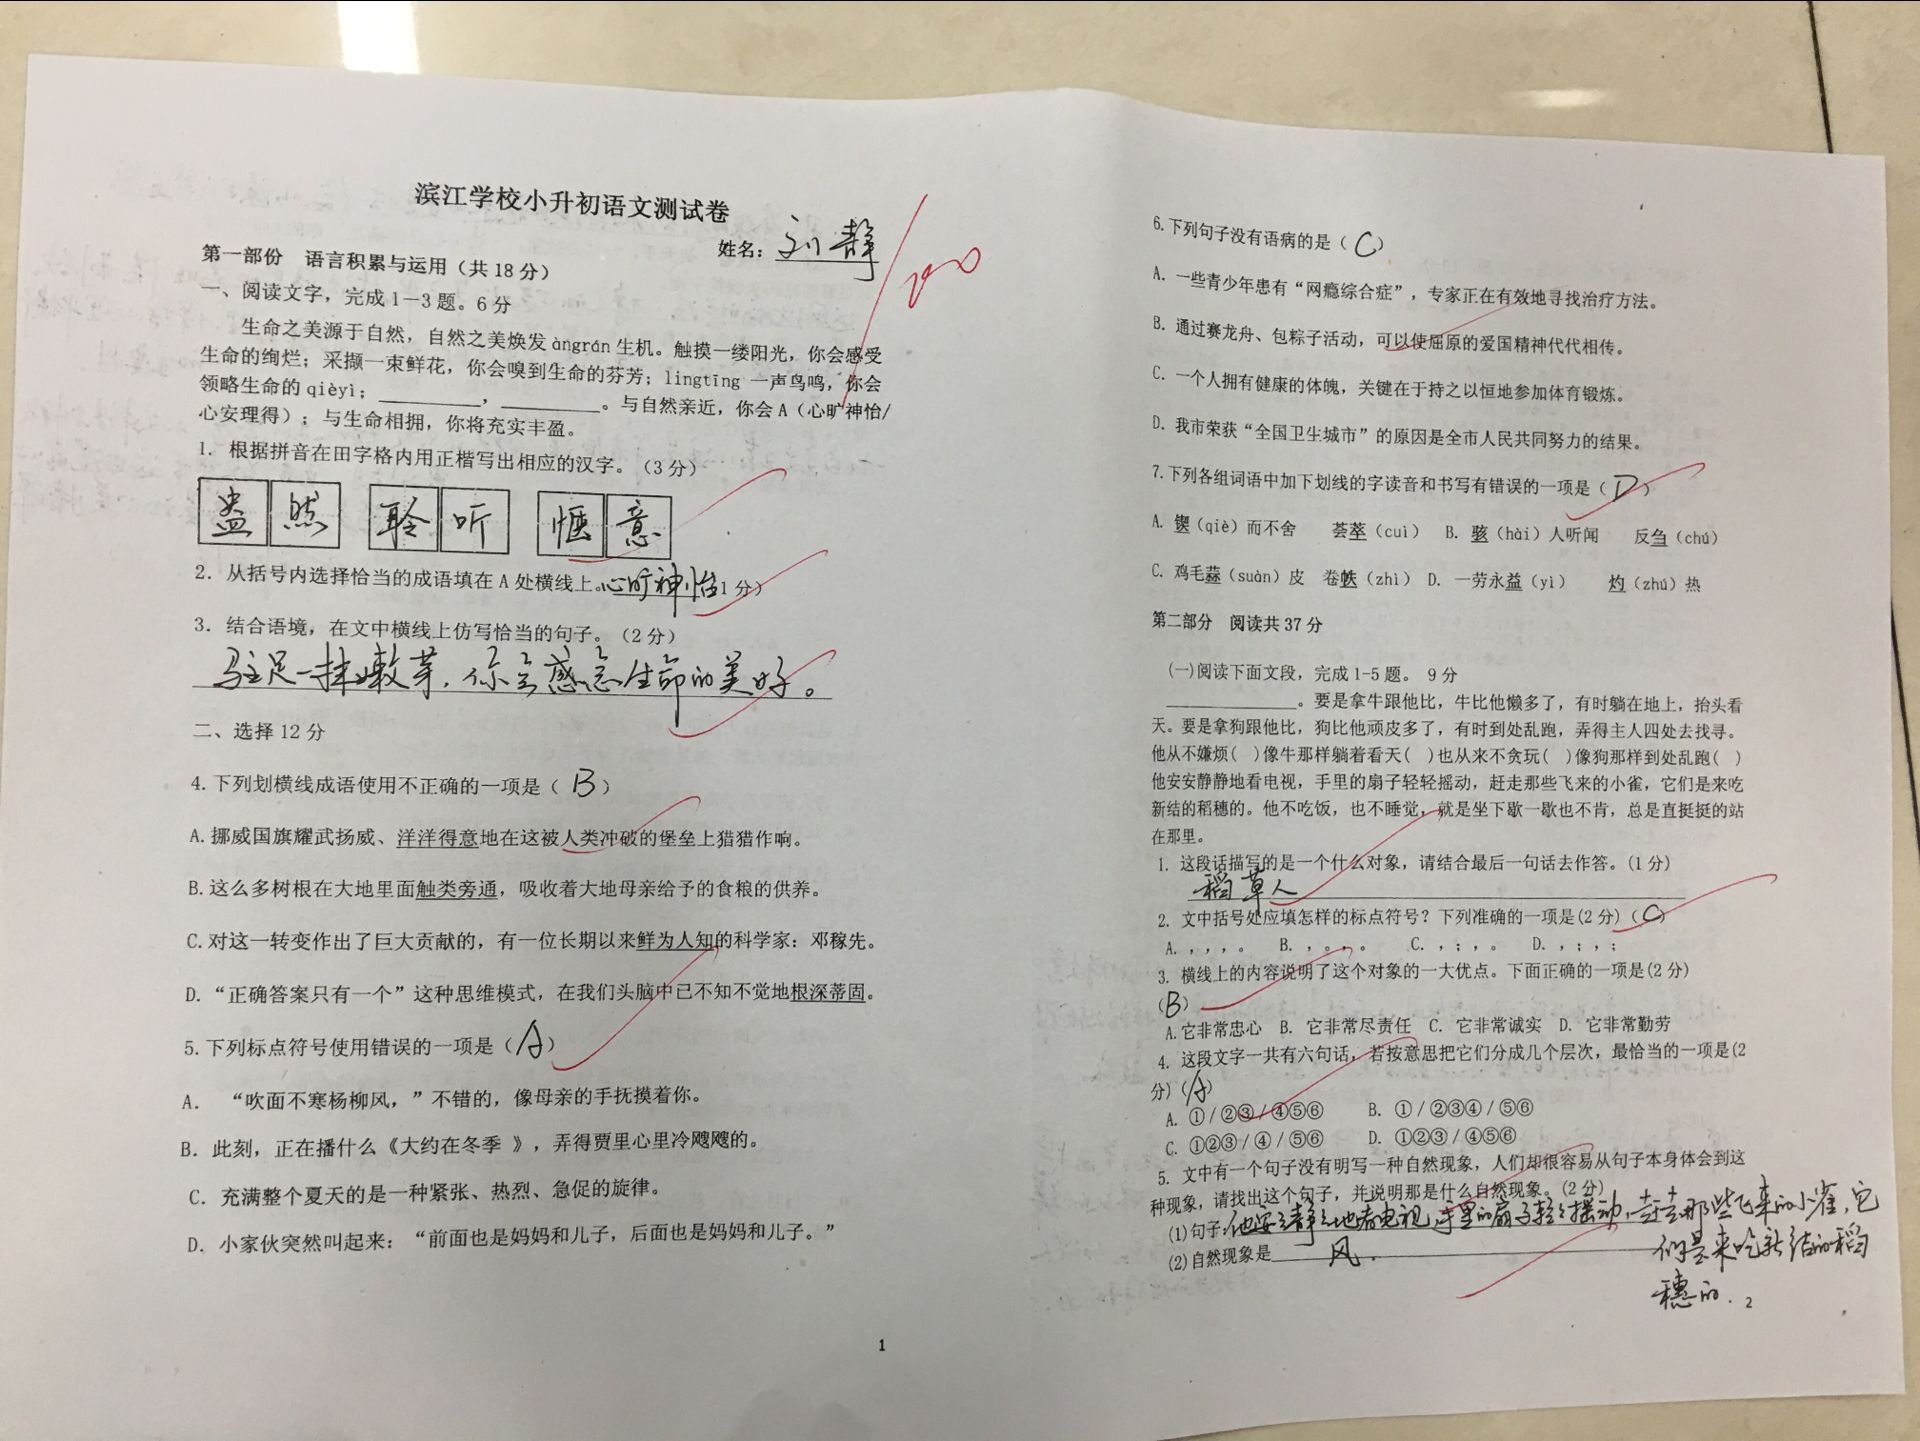 滨江学校小升初语文测试卷
姓名：刘静
第一部份 语言积累与运用（共18分）
一、阅读文字，完成1—3题。6分
生命之美源于自然，自然之美焕发àngrán生机。触摸一缕阳光，你会感受
生命的绚烂；采撷一束鲜花，你会嗅到生命的芬芳；lingtīng 一声鸟鸣，你会
领略生命的qièyì；________，________。与自然亲近，你会A（心旷神怡/
心安理得）；与生命相拥，你将充实丰盈。
1. 根据拼音在田字格内用正楷写出相应的汉字。（3分）
盎然 聆听 惬意
2. 从括号内选择恰当的成语填在A处横线上。心旷神怡1分）
3. 结合语境，在文中横线上仿写恰当的句子。（2分）
驻足一抹嫩芽，你会感念生命的美好。
二、选择12分
4.下列划横线成语使用不正确的一项是（B）
A.挪威国旗耀武扬威、洋洋得意地在这被人类冲破的堡垒上猎猎作响。
B.这么多树根在大地里面触类旁通，吸收着大地母亲给予的食粮的供养。
C.对这一转变作出了巨大贡献的，有一位长期以来鲜为人知的科学家：邓稼先。
D.“正确答案只有一个”这种思维模式，在我们头脑中已不知不觉地根深蒂固。
5.下列标点符号使用错误的一项是（A）
A. “吹面不寒杨柳风，”不错的，像母亲的手抚摸着你。
B. 此刻，正在播什么《大约在冬季 》，弄得贾里心里冷飕飕的。
C. 充满整个夏天的是一种紧张、热烈、急促的旋律。
D. 小家伙突然叫起来：“前面也是妈妈和儿子，后面也是妈妈和儿子。”
1
6.下列句子没有语病的是（C）
A. 一些青少年患有“网瘾综合症”，专家正在有效地寻找治疗方法。
B. 通过赛龙舟、包粽子活动，可以使屈原的爱国精神代代相传。
C. 一个人拥有健康的体魄，关键在于持之以恒地参加体育锻炼。
D. 我市荣获“全国卫生城市”的原因是全市人民共同努力的结果。
7.下列各组词语中加下划线的字读音和书写有错误的一项是（D）
A. 锲（qiè）而不舍 荟萃（cuì） B. 骇（hài）人听闻 反刍（chú）
C. 鸡毛蒜（suàn）皮 卷帙（zhì） D. 一劳永益（yì） 灼（zhú）热
第二部分 阅读共37分
(一)阅读下面文段，完成1-5题。 9分
____________。要是拿牛跟他比，牛比他懒多了，有时躺在地上，抬头看
天。要是拿狗跟他比，狗比他顽皮多了，有时到处乱跑，弄得主人四处去找寻。
他从不嫌烦( )像牛那样躺着看天( )也从来不贪玩( )像狗那样到处乱跑( )
他安安静静地看电视，手里的扇子轻轻摇动，赶走那些飞来的小雀，它们是来吃
新结的稻穗的。他不吃饭，也不睡觉，就是坐下歇一歇也不肯，总是直挺挺的站
在那里。
1. 这段话描写的是一个什么对象，请结合最后一句话去作答。(1分)
稻草人
2. 文中括号处应填怎样的标点符号？下列准确的一项是(2分)（C）
A. ，，，。 B. ，。，。 C. ，；，。 D. ，；，；
3. 横线上的内容说明了这个对象的一大优点。下面正确的一项是(2分)
（B）
A.它非常忠心 B. 它非常尽责任 C. 它非常诚实 D. 它非常勤劳
4. 这段文字一共有六句话，若按意思把它们分成几个层次，最恰当的一项是(2
分)（A）
A. ①/②③/④⑤⑥ B. ①/②③④/⑤⑥
C. ①②③/④/⑤⑥ D. ①②③/④⑤⑥
5. 文中有一个句子没有明写一种自然现象，人们却很容易从句子本身体会到这
种现象，请找出这个句子，并说明那是什么自然现象。(2分)
(1)句子：他安安静静地看电视，手里的扇子轻轻摆动，赶走那些飞来的小雀，它
们是来吃新结的稻
穗的。
(2)自然现象是 风.
2